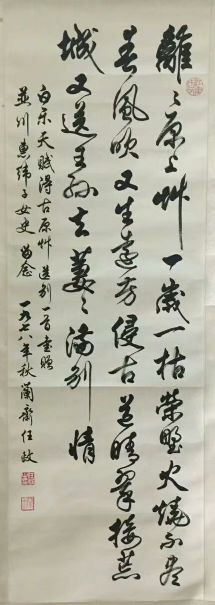 離〻原上艸一歲一枯榮野火燒不盡
春風吹又生遠芳侵古道晴翠接荒
城又送王孫去萋〻滿別情
白樂天賦得古原艸送別一首書贈
並川惠緯子女史留念
一九七八年秋蘭齋任政